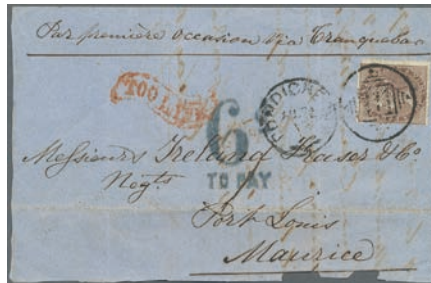 Par première occasion via Tranquebar
TOO LATE
PONDICHE
6
TO PAY
Messieurs Ireland Fraser & Co
Negts
Port Louis
Maurice